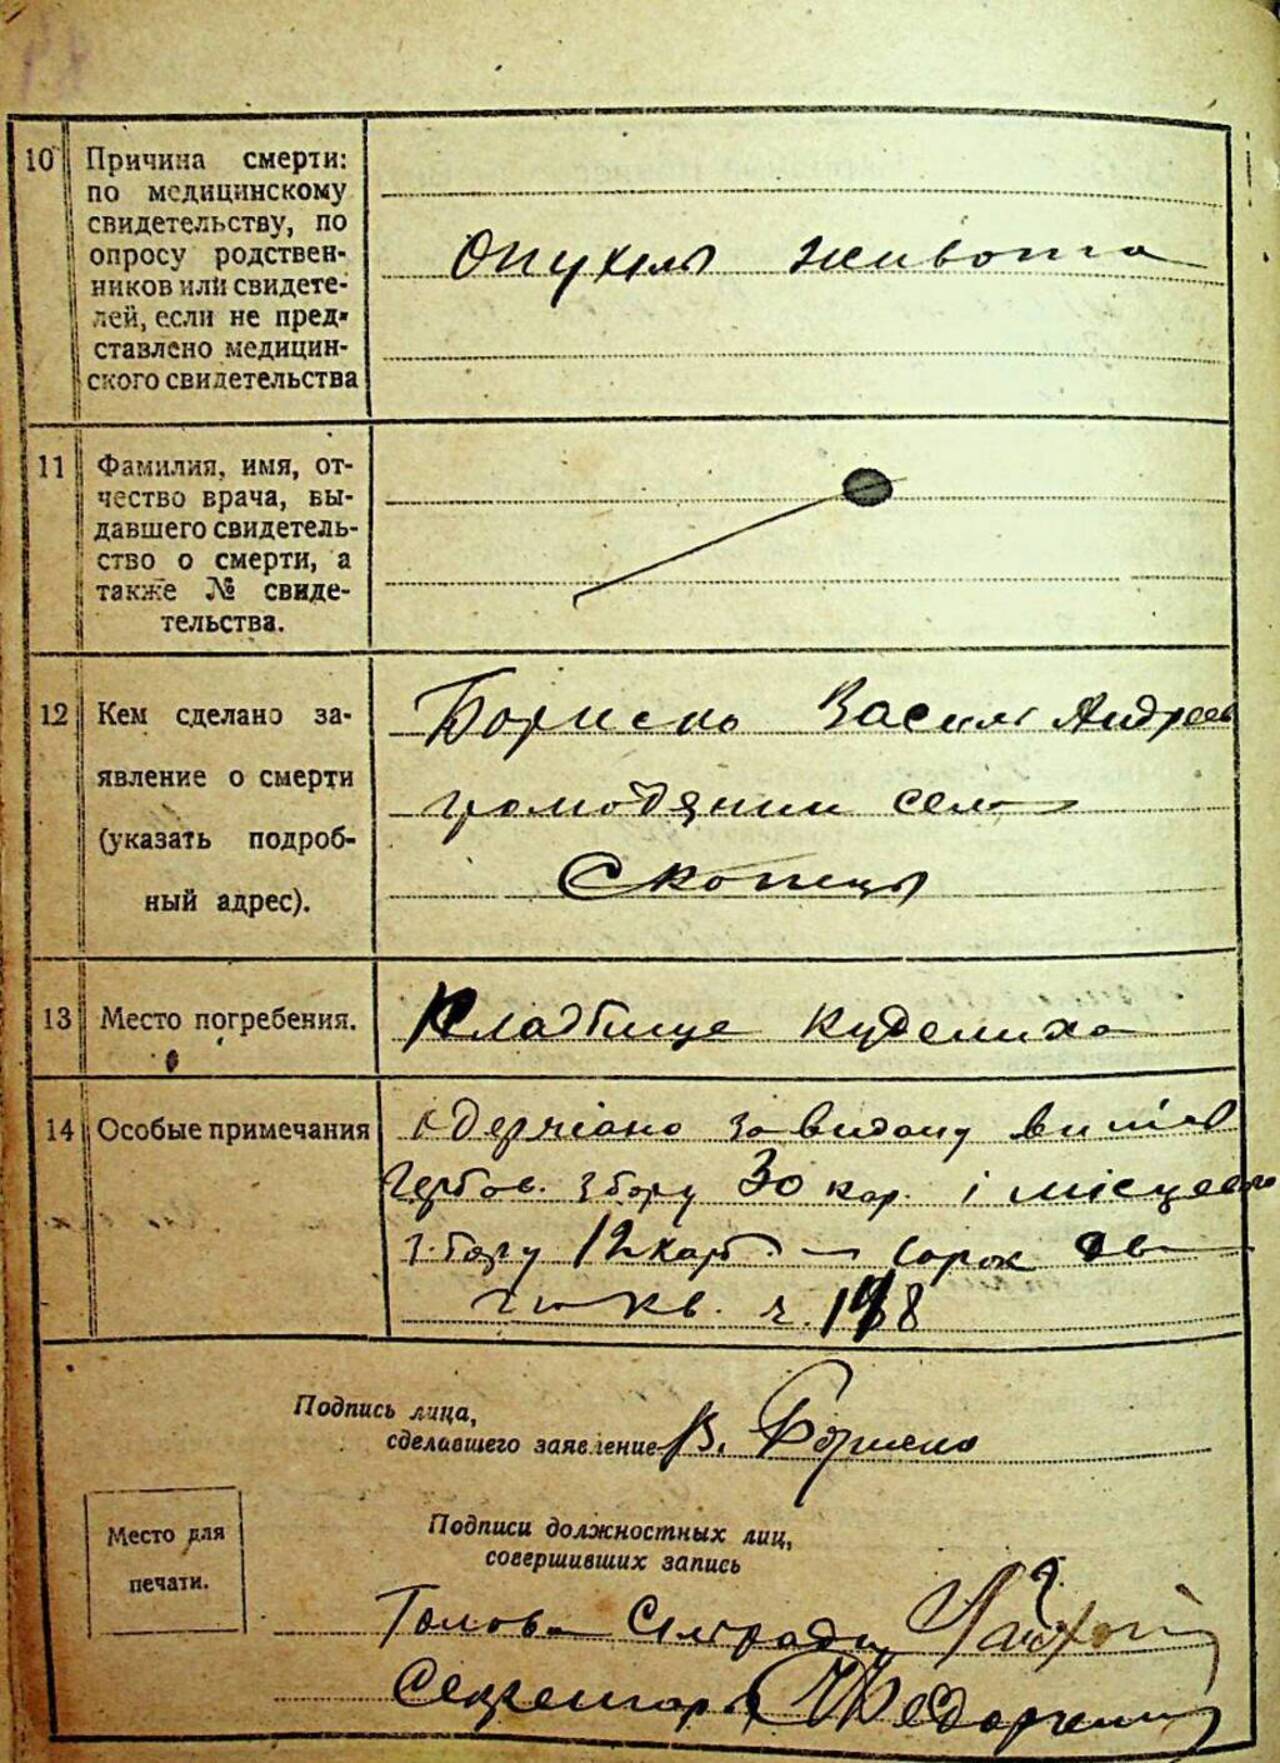 10 Причина смерти:
по медицинскому
свидетельству, по
опросу родствен-
ников или свидете-
лей, если не пред-
ставлено медицин-
ского свидетельства
Опухоль живота
11 Фамилия, имя, от-
чество врача, вы-
давшего свидетель-
ство о смерти, а
также № свиде-
тельства.
12 Кем сделано за-
явление о смерти
(указать подроб-
ный адрес).
Борисно Василь Андреев
громодянин села
Скопцы
13 Место погребения.
Кладбище Куделиха
14 Особые примечания
одержано за видану випис
гербов. збору 30 кар. і місцевого
збору 12 карб. — сорок два
кв. ч. 198
Подпись лица,
сделавшего заявление В. Борисно
Место для
печати.
Подписи должностных лиц,
совершивших запись
Голова Сільради
Секретарь